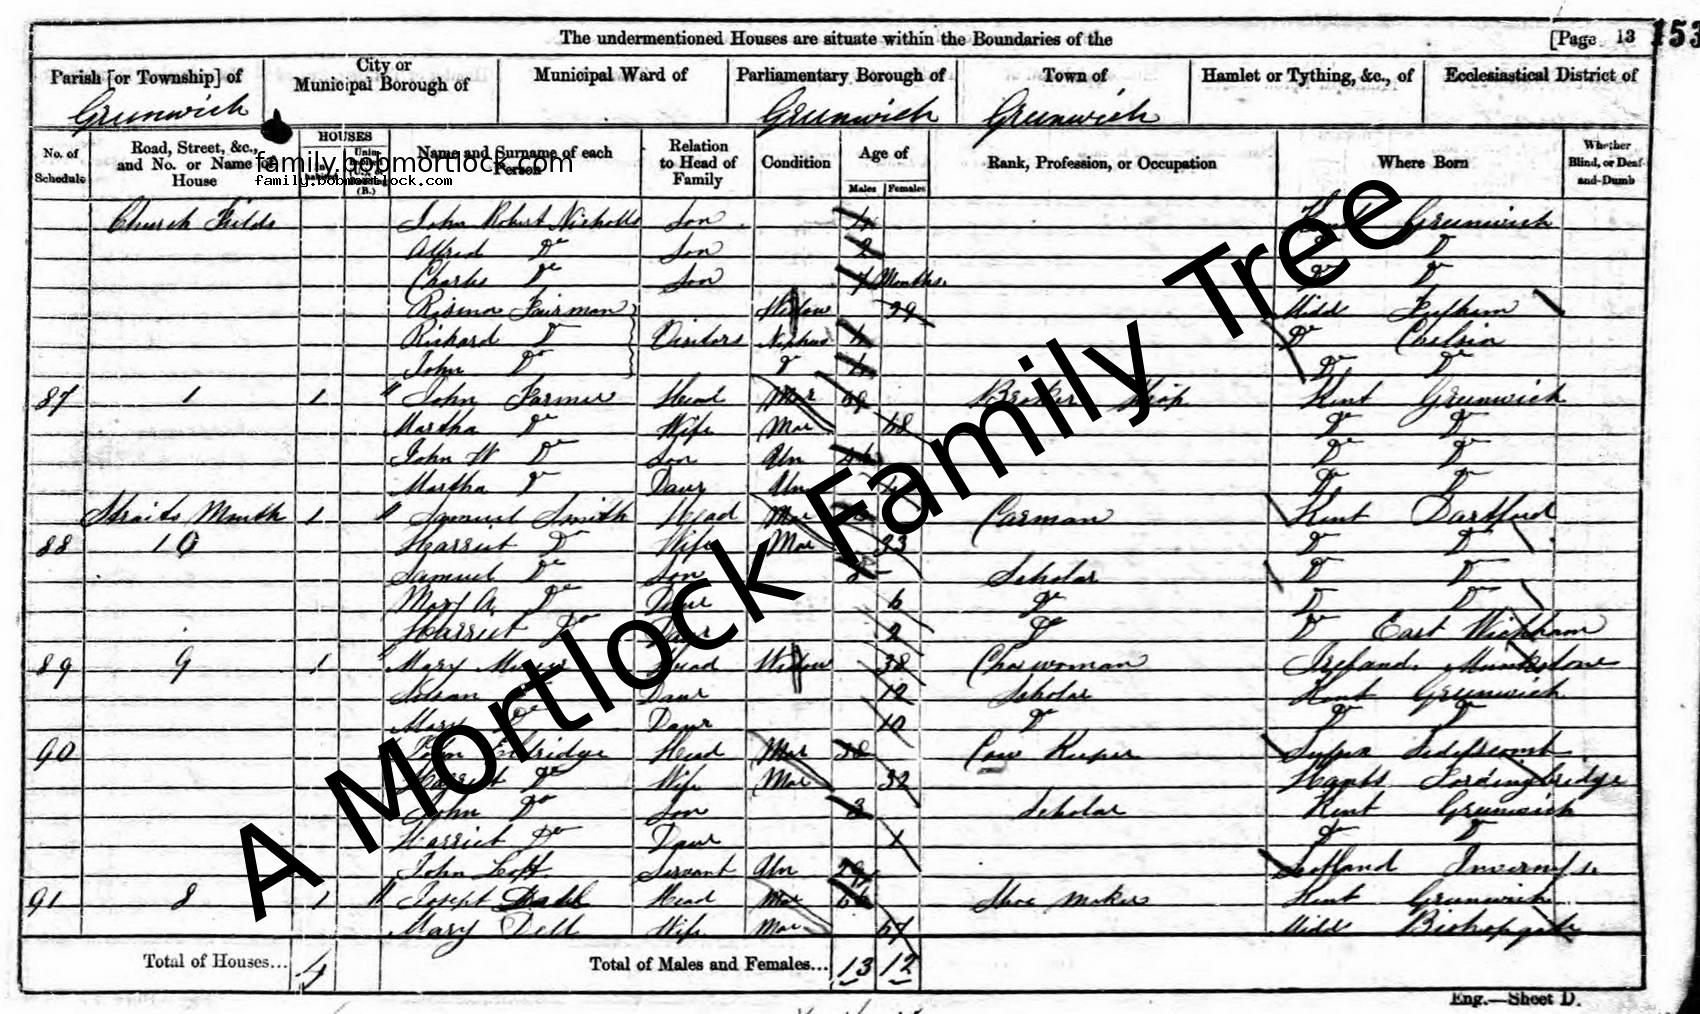 The undermentioned Houses are situate within the Boundaries of the [Page 13 153
Parish [or Township] of City or Municipal Borough of Municipal Ward of Parliamentary Borough of Town of Hamlet or Tything, &c., of Ecclesiastical District of
Greenwich Greenwich Greenwich
No. of Schedule Road, Street, &c., and No. or Name of House HOUSES Name and Surname of each Person Relation to Head of Family Condition Age of Males Females Rank, Profession, or Occupation Where Born Whether Blind, or Deaf-and-Dumb
family.bobmortlock.com
family.bobmortlock.com
Church Fields John Robert Nicholls Son 4 Kent Greenwich
Alfred Do Son 2 Do Do
Charles Do Son 7 Months Do Do
Fairman Widow 29 Midd Fulham
Richard Do Visitors Nephew 4 Do Chelsea
John Do Do Do Do
87 1 1 John Farmer Head Mar Kent Greenwich
Martha Do Wife Mar 48 Do Do
John W Do Son Un Do Do
Martha Do Daur Un Do Do
Straits Mouth 1 Samuel Smith Head Mar Carman Kent Dartford
88 10 Harriet Do Wife Mar 33 Do Do
Samuel Do Son 8 Scholar Do Do
Mary A. Do Daur 6 Do Do Do
Harriet Do Daur 2 Do Do East Wickham
89 9 1 Mary Head Widow 38 Charwoman Ireland
Susan Do Daur 12 Scholar Kent Greenwich
Mary Do Daur 10 Do Do Do
90 John Eldridge Head Mar 38 Cow Keeper Sussex Sedlescomb
Harriet Do Wife Mar 32 Hants Fordingbridge
John Do Son 3 Scholar Kent Greenwich
Harriet Do Daur 1 Do Do
John Loft Servant Un Scotland Inverness
91 8 1 Joseph Dell Head Mar Shoe maker Kent Greenwich
Mary Dell Wife Mar 67 Midd Bishopgate
Total of Houses... 4 Total of Males and Females... 13 12
Eng.—Sheet D.
A Mortlock Family Tree